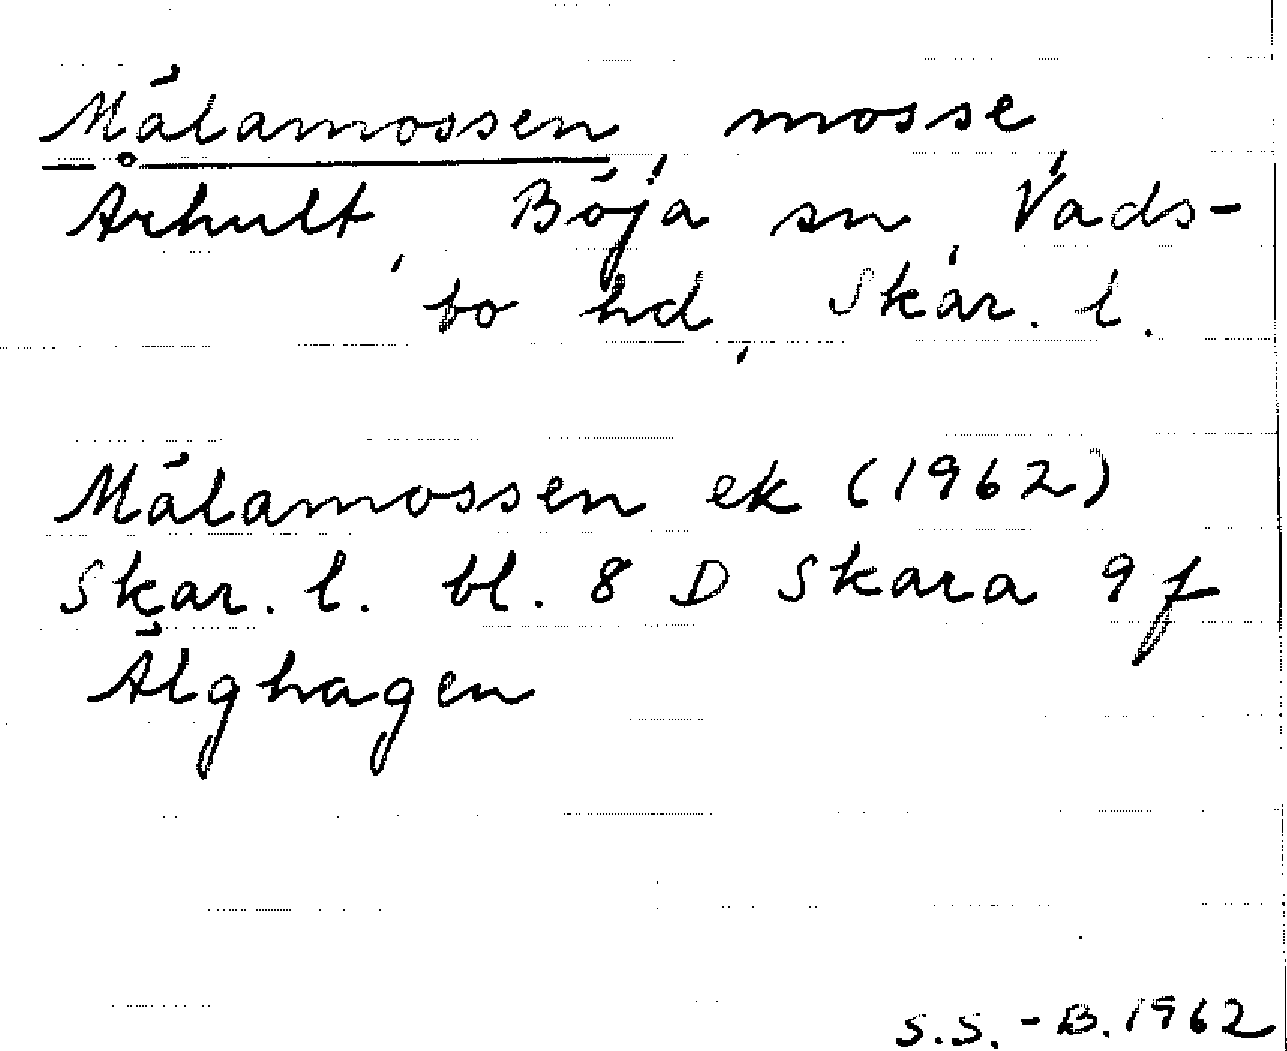 Mälamossen, mosse,
Århult, Böja sn, Vads-
bo hd, Skar. l.
Mälamossen ek (1962)
Skar. l. bl. 8 D Skara 9 f
Älghagen
S.S.-B. 1962